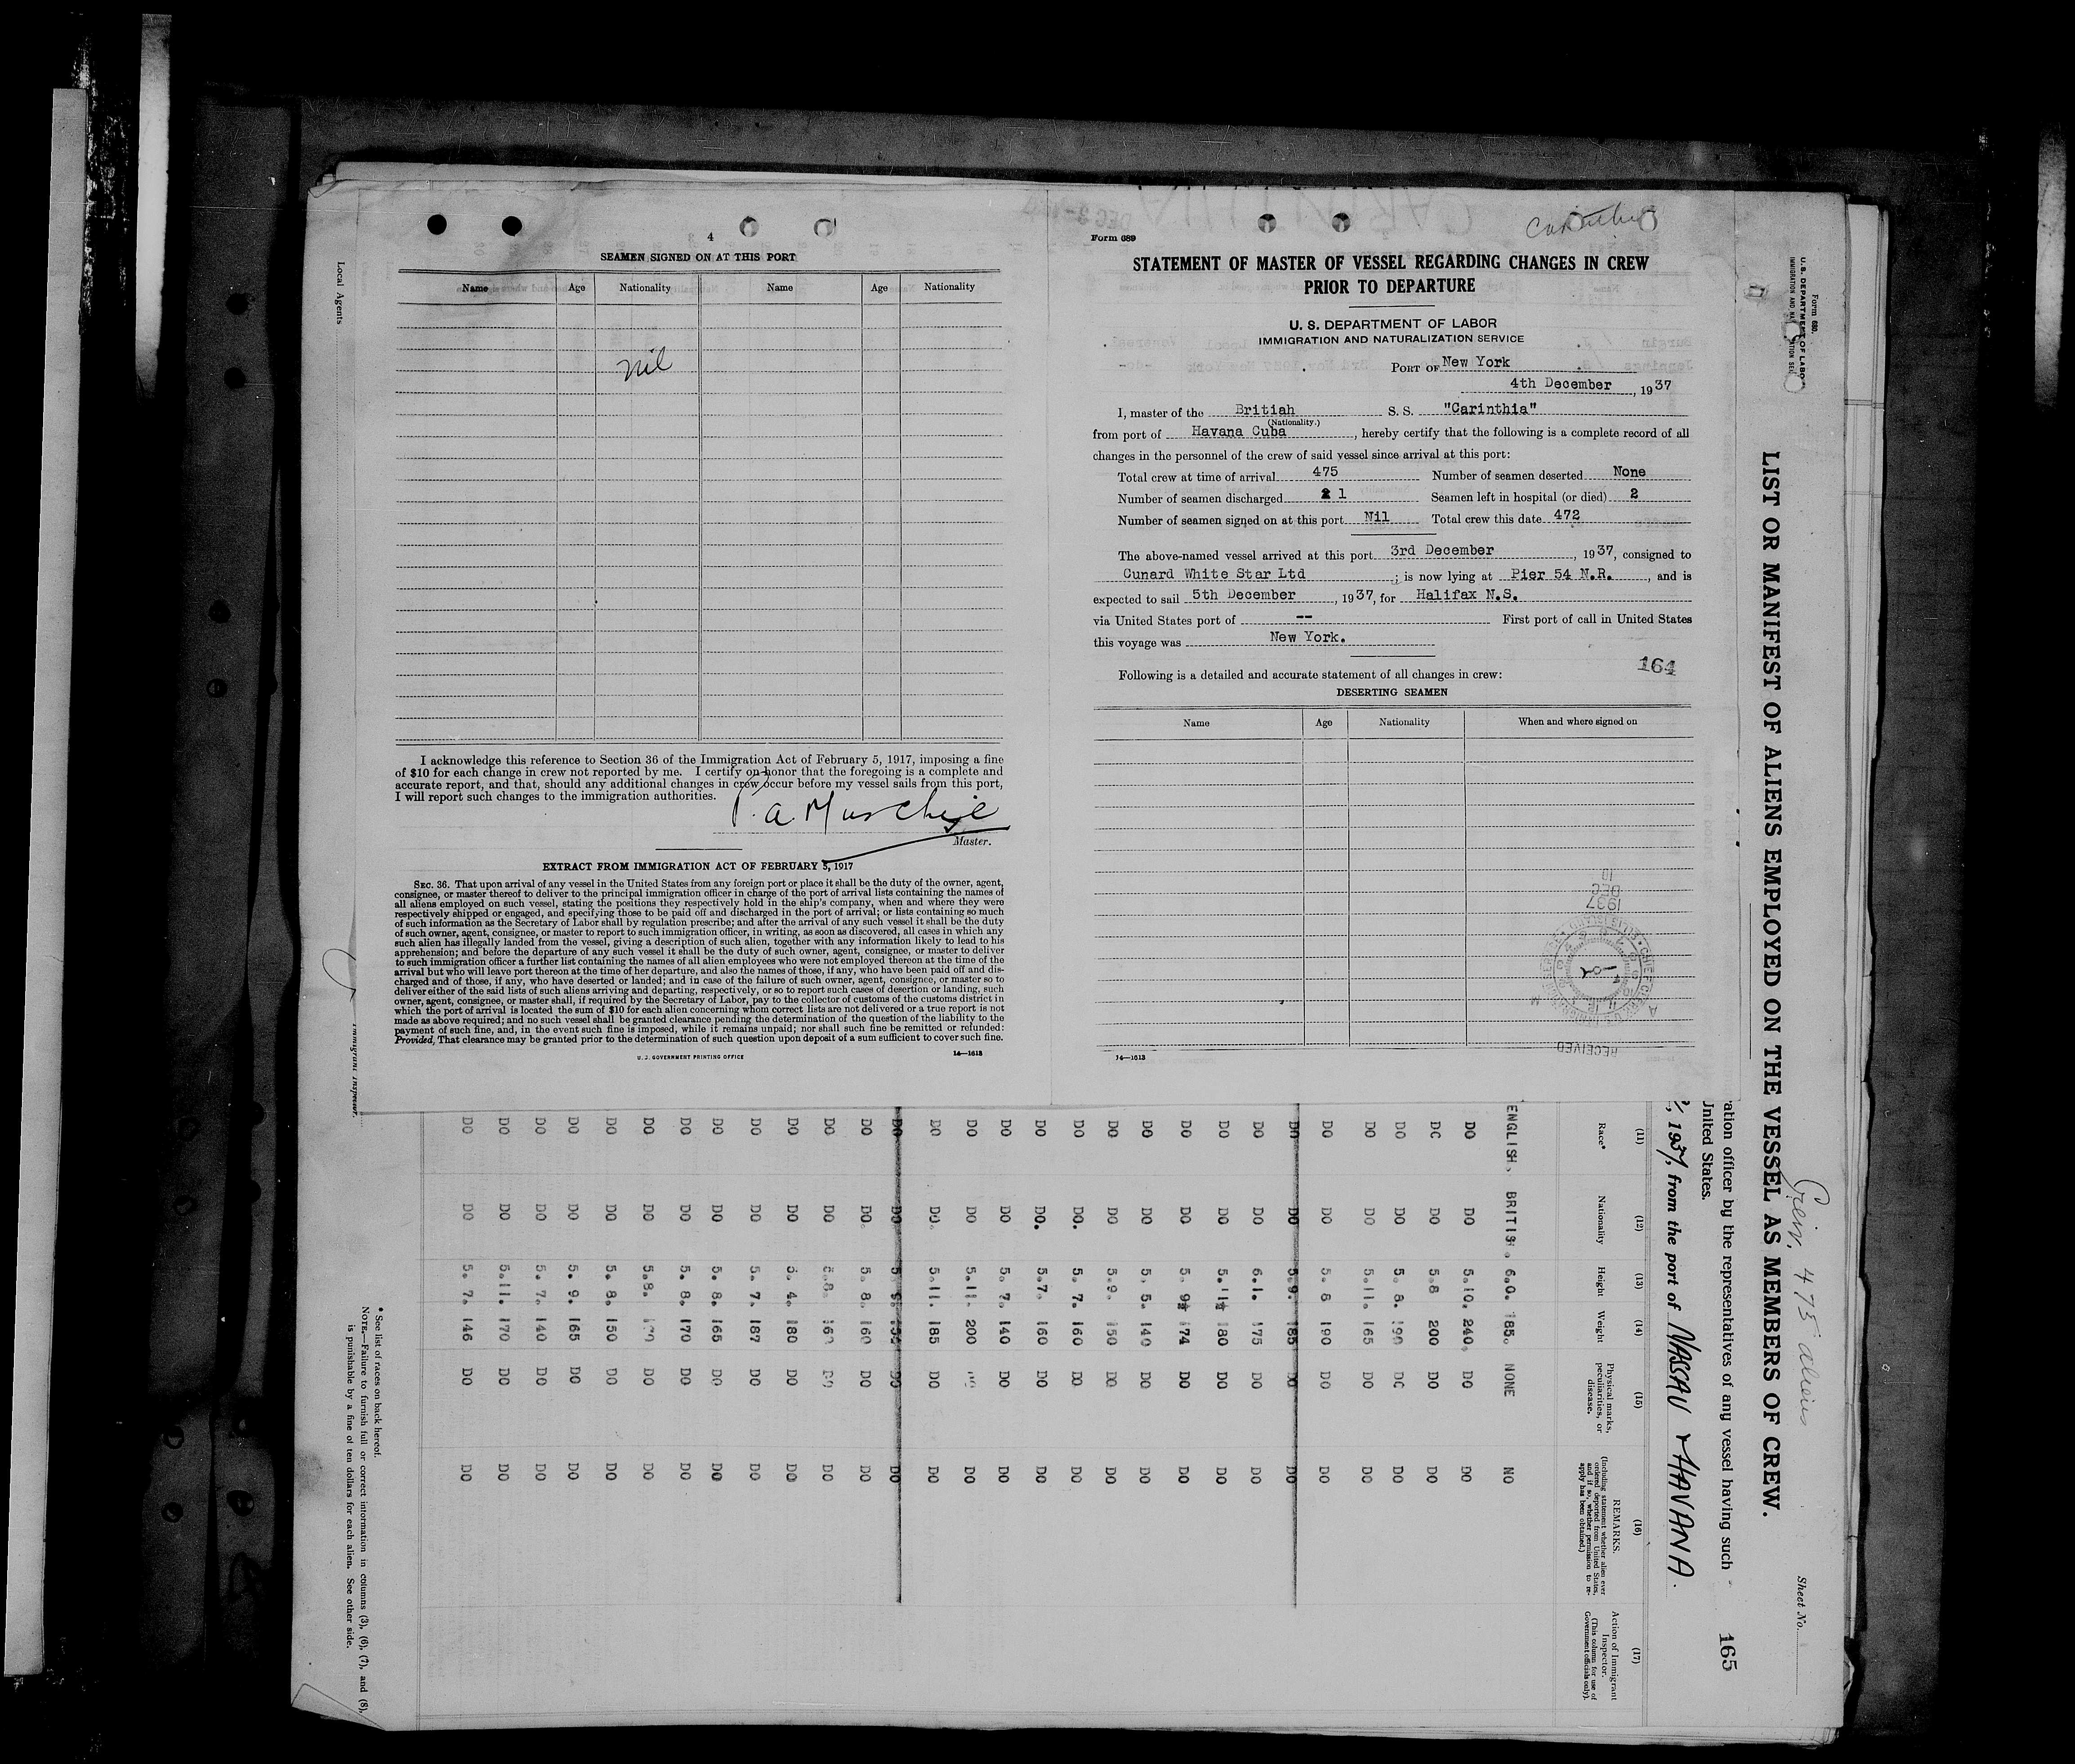 4
SEAMEN SIGNED ON AT THIS PORT
Name Age Nationality Name Age Nationality
Nil
I acknowledge this reference to Section 36 of the Immigration Act of February 5, 1917, imposing a fine
of $10 for each change in crew not reported by me. I certify on honor that the foregoing is a complete and
accurate report, and that, should any additional changes in crew occur before my vessel sails from this port,
I will report such changes to the immigration authorities.
Master.
EXTRACT FROM IMMIGRATION ACT OF FEBRUARY 5, 1917
SEC. 36. That upon arrival of any vessel in the United States from any foreign port or place it shall be the duty of the owner, agent,
consignee, or master thereof to deliver to the principal immigration officer in charge of the port of arrival lists containing the names of
all aliens employed on such vessel, stating the positions they respectively hold in the ship's company, when and where they were
respectively shipped or engaged, and specifying those to be paid off and discharged in the port of arrival; or lists containing so much
of such information as the Secretary of Labor shall by regulation prescribe; and after the arrival of any such vessel it shall be the duty
of such owner, agent, consignee, or master to report to such immigration officer, in writing, as soon as discovered, all cases in which any
such alien has illegally landed from the vessel, giving a description of such alien, together with any information likely to lead to his
apprehension; and before the departure of any such vessel it shall be the duty of such owner, agent, consignee, or master to deliver
to such immigration officer a further list containing the names of all alien employees who were not employed thereon at the time of the
arrival but who will leave port thereon at the time of her departure, and also the names of those, if any, who have been paid off and dis-
charged and of those, if any, who have deserted or landed; and in case of the failure of such owner, agent, consignee, or master so to
deliver either of the said lists of such aliens arriving and departing, respectively, or so to report such cases of desertion or landing, such
owner, agent, consignee, or master shall, if required by the Secretary of Labor, pay to the collector of customs of the customs district in
which the port of arrival is located the sum of $10 for each alien concerning whom correct lists are not delivered or a true report is not
made as above required; and no such vessel shall be granted clearance pending the determination of the question of the liability to the
payment of such fine, and, in the event such fine is imposed, while it remains unpaid; nor shall such fine be remitted or refunded:
Provided, That clearance may be granted prior to the determination of such question upon deposit of a sum sufficient to cover such fine.
U. S. GOVERNMENT PRINTING OFFICE 14—1613
Form 689
Carinthia
STATEMENT OF MASTER OF VESSEL REGARDING CHANGES IN CREW
PRIOR TO DEPARTURE
U. S. DEPARTMENT OF LABOR
IMMIGRATION AND NATURALIZATION SERVICE
PORT OF New York
4th December, 1937
I, master of the British S. S. "Carinthia"
(Nationality.)
from port of Havana Cuba, hereby certify that the following is a complete record of all
changes in the personnel of the crew of said vessel since arrival at this port:
Total crew at time of arrival 475 Number of seamen deserted None
Number of seamen discharged 1 Seamen left in hospital (or died) 2
Number of seamen signed on at this port Nil Total crew this date 472
The above-named vessel arrived at this port 3rd December, 1937, consigned to
Cunard White Star Ltd; is now lying at Pier 54 N.R., and is
expected to sail 5th December, 1937, for Halifax N.S.
via United States port of -- First port of call in United States
this voyage was New York.
164
Following is a detailed and accurate statement of all changes in crew:
DESERTING SEAMEN
Name Age Nationality When and where signed on
1937
DEC
10
RECEIVED
14—1613
Local Agents
Immigrant Inspector.
Form 680.
U. S. DEPARTMENT OF LABOR
LIST OR MANIFEST OF ALIENS EMPLOYED ON THE VESSEL AS MEMBERS OF CREW.
475 aliens
Sheet No.
165
ation officer by the representatives of any vessel having such
United States.
, 1937, from the port of NASSAU + HAVANA.
(11) (12) (13) (14) (15) (16) (17)
Race* Nationality Height Weight Physical marks, peculiarities, or disease. REMARKS. (Including statement whether alien ever ordered deported from United States, and if so, whether permission to re-apply has been obtained.) Action of Immigrant Inspector. (This column for use of Government officials only).
ENGLISH. BRITISH. 6.0. 185. NONE NO
DO DO 5.10. 240. DO DO
DO DO 5.8 200 DO DO
DO DO 5.8. 190 DO DO
DO DO 5.11. 165 DO DO
DO DO 5.8 190 DO DO
DO DO 5.9. 185 DO DO
DO DO 6.1. 175 DO DO
DO DO 5.11½ 180 DO DO
DO DO 5.9½ 174 DO DO
DO DO 5.5. 140 DO DO
DO DO 5.9. 150 DO DO
DO DO. 5.7. 160 DO DO
DO DO. 5.7. 160 DO DO
DO DO 5.7. 140 DO DO
DO DO 5.11. 200 DO DO
DO DO. 5.11. 185 DO DO
DO DO 5.9. DO DO
DO DO. 5.8. 160 DO DO
DO DO 5.8. 160 DO DO
DO DO 5.4. 180 DO DO
DO DO 5.7. 187 DO DO
DO DO 5.8. 165 DO DO
DO DO 5.8. 170 DO DO
DO DO 5.8. DO DO
DO DO 5.8. 150 DO DO
DO DO 5.9. 165 DO DO
DO DO 5.7. 140 DO DO
DO DO 5.11. 170 DO DO
DO DO 5.7. 146 DO DO
* See list of races on back hereof.
NOTE.—Failure to furnish full or correct information in columns (3), (6), (7), and (8),
is punishable by a fine of ten dollars for each alien. See other side.